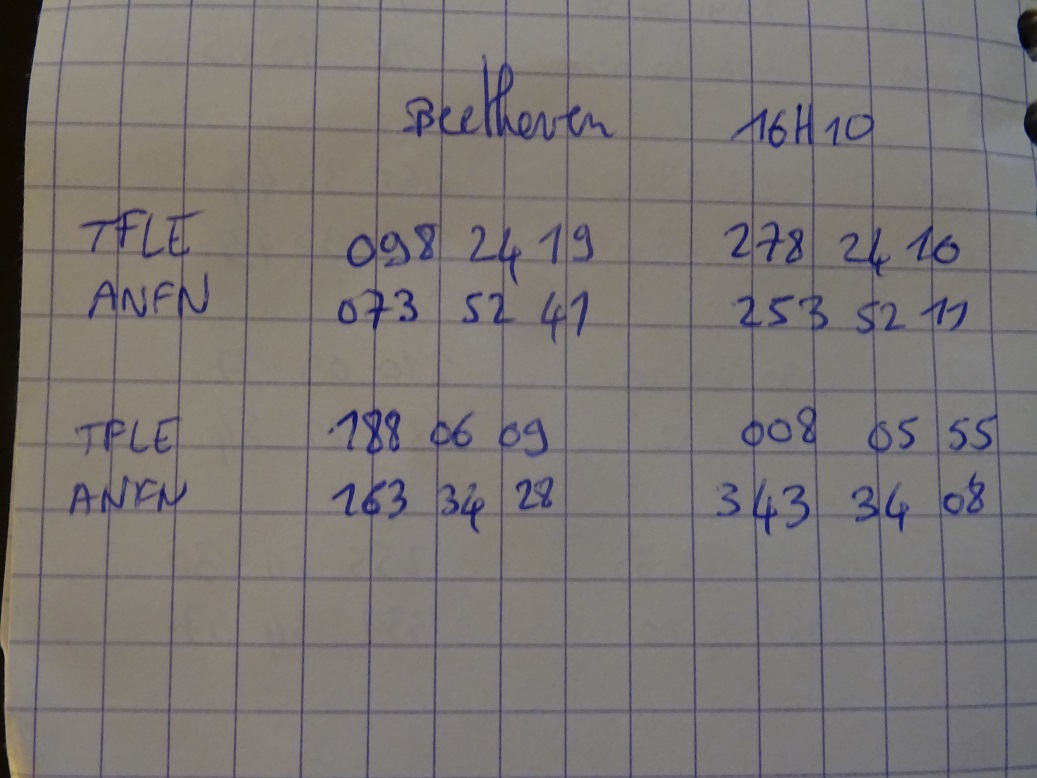 Beethoven 16H10
TFLE 098 24 19 278 24 10
ANFN 073 52 41 253 52 11
TFLE 188 06 09 008 05 55
ANFN 163 34 28 343 34 08